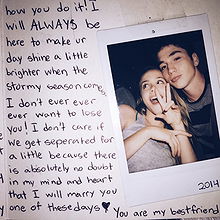 how you do it! I
will ALWAYS be
here to make ur
day shine a little
brighter when the
stormy season comes
I don't ever ever
ever want to lose
you! I don't care if
we get seperated for
a little because there
is absolutely no doubt
in my mind and heart
that I will marry you
one of these days
You are my bestfriend
2014